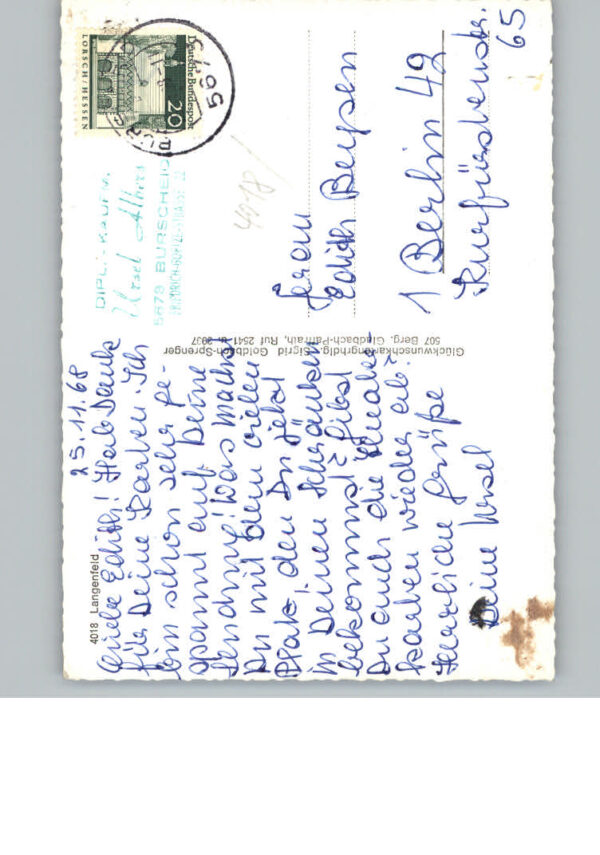 4018 Langenfeld
25.11.68
Liebe Edith! Hab Dank
für Deine Karten. Ich
bin schon sehr ge-
spannt auf Deine
Sendung! Was machst
Du mit dem vielen
Platz, den Du jetzt
in Deinen Schränken
bekommst? Gibst
Du auch die
karten wieder ab?
Herzliche Grüße
Deine Ursel
Glückwunschkartengrhdlg. Sigrid Goldbach-Sprenger
507 Berg. Gladbach-Paffrath, Ruf 2541 u. 3937
DIPL.-KAUFM.
Ursel Albers
5673 BURSCHEID
4018/
LORSCH/HESSEN
Deutsche Bundespost
20
5673
Edith Beysen
1 Berlin 49
Kurfürstenstr.
65